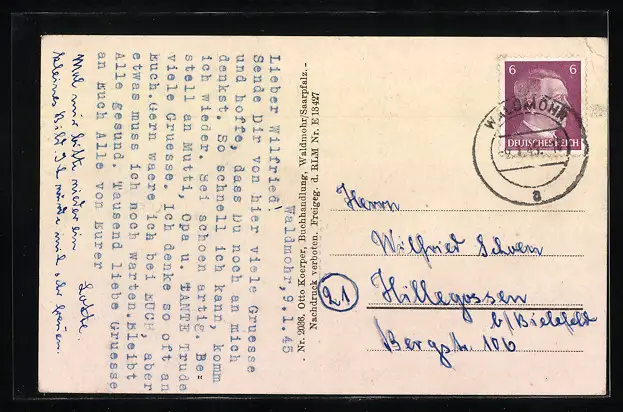 Waldmohr, 9.1.45
Lieber Wilfried!
Sende Dir von hier viele Gruesse
und hoffe, dass Du noch an mich
denkst. So schnell ich kann, komm
ich wieder. Sei schoen artig. Be=
stell an Mutti, Opa u. TANTE Trude
viele Gruesse. Ich denke so oft an
Euch.Gern waere ich bei EUCH, aber
etwas muss ich noch warten.Bleibt
Alle gesund. Tausend liebe Gruesse
an Euch Alle von Eurer
Lotte.
Mal mir bitte wieder ein
kleines Bild. Ich würde mich sehr freuen.
. Nr. 2036. Otto Koerper, Buchhandlung, Waldmohr/Saarpfalz. -
Nachdruck verboten. Freigeg. d. RLM Nr. E 13427
6 6
DEUTSCHES REICH
WALDMOHR
a
Herrn
Wilfried
21
Hillegossen
b/Bielefeld
Bergstr. 106